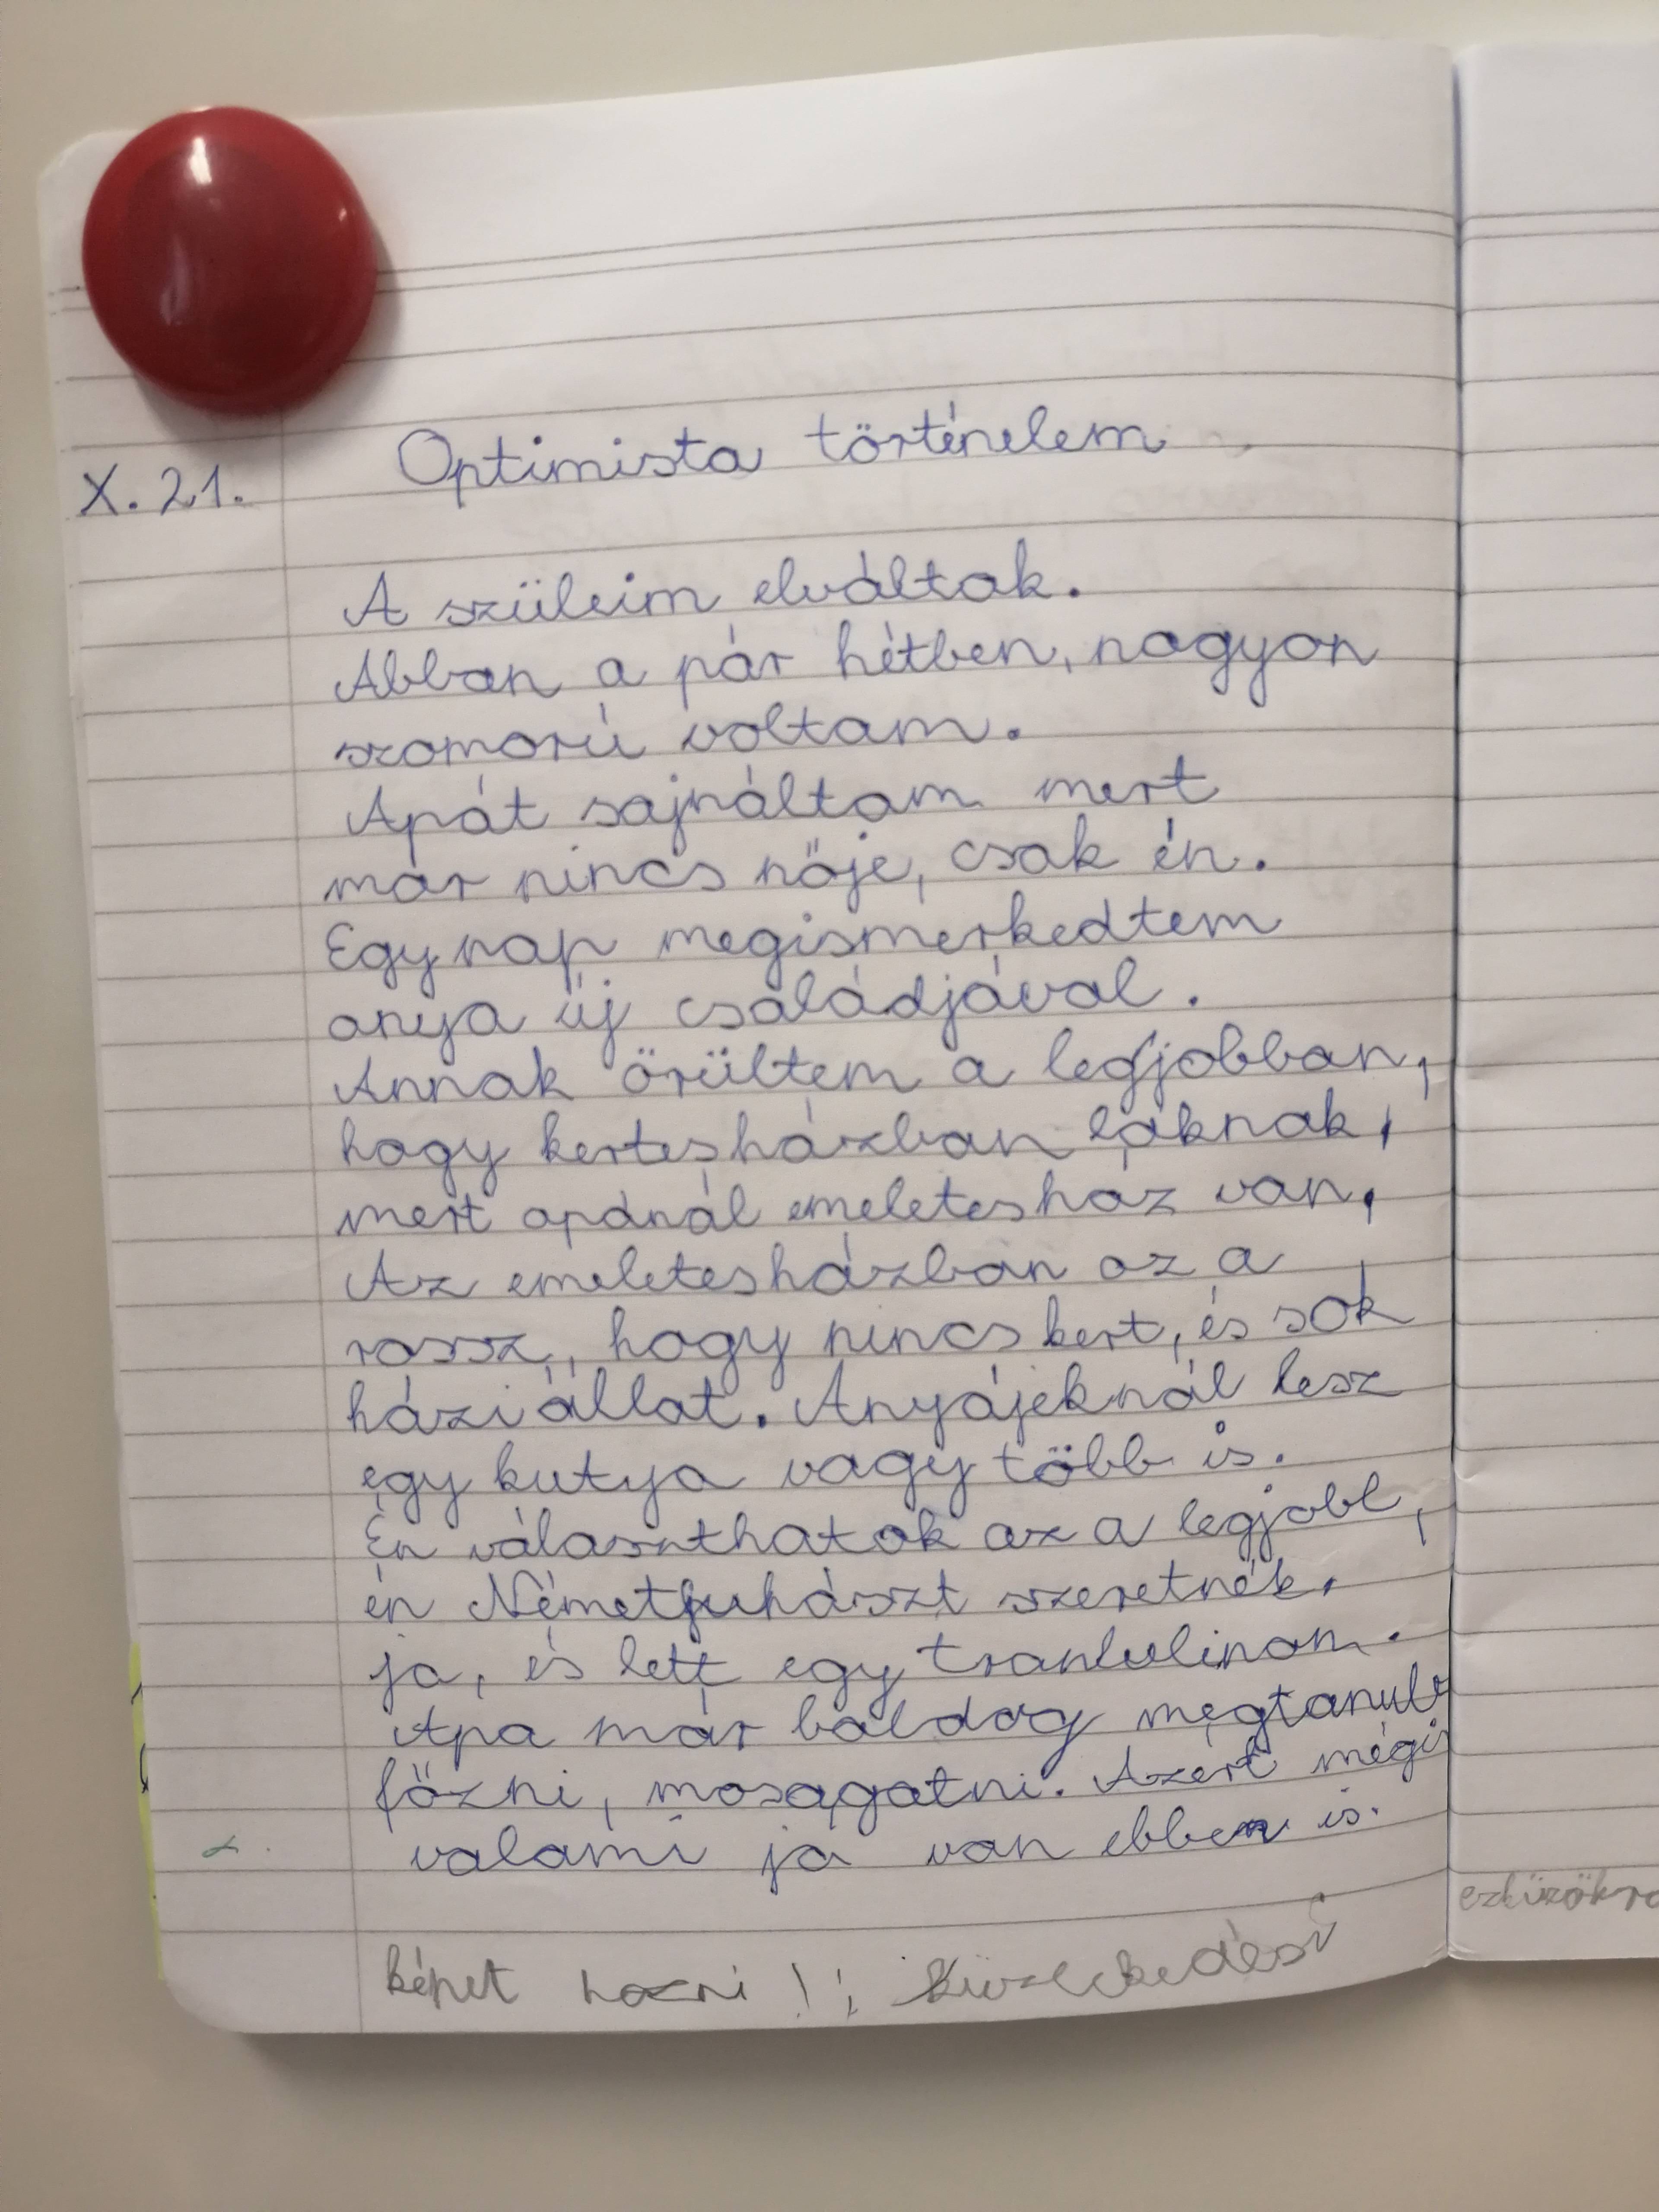 Optimista történelem
X. 21.
A szüleim elváltak.
Abban a pár hétben, nagyon
szomorú voltam.
Apát sajnáltam mert
már nincs nője, csak én.
Egy nap megismerkedtem
anya új családjával.
Annak örültem a legjobban,
hogy kertesházban laknak,
mert apánál emeletesház van,
Az emeletesházban az a
rossz, hogy nincs kert, és sok
háziállat. Anyájéknál lesz
egy kutya vagy több is.
Én választhatok az a legjobb,
én Németjuhászt szeretnék.
ja, és lett egy tranbulinom.
Apa már boldog megtanult
főzni, mosogatni. Azért mégis
valami jó van ebben is.
képet hozni!;